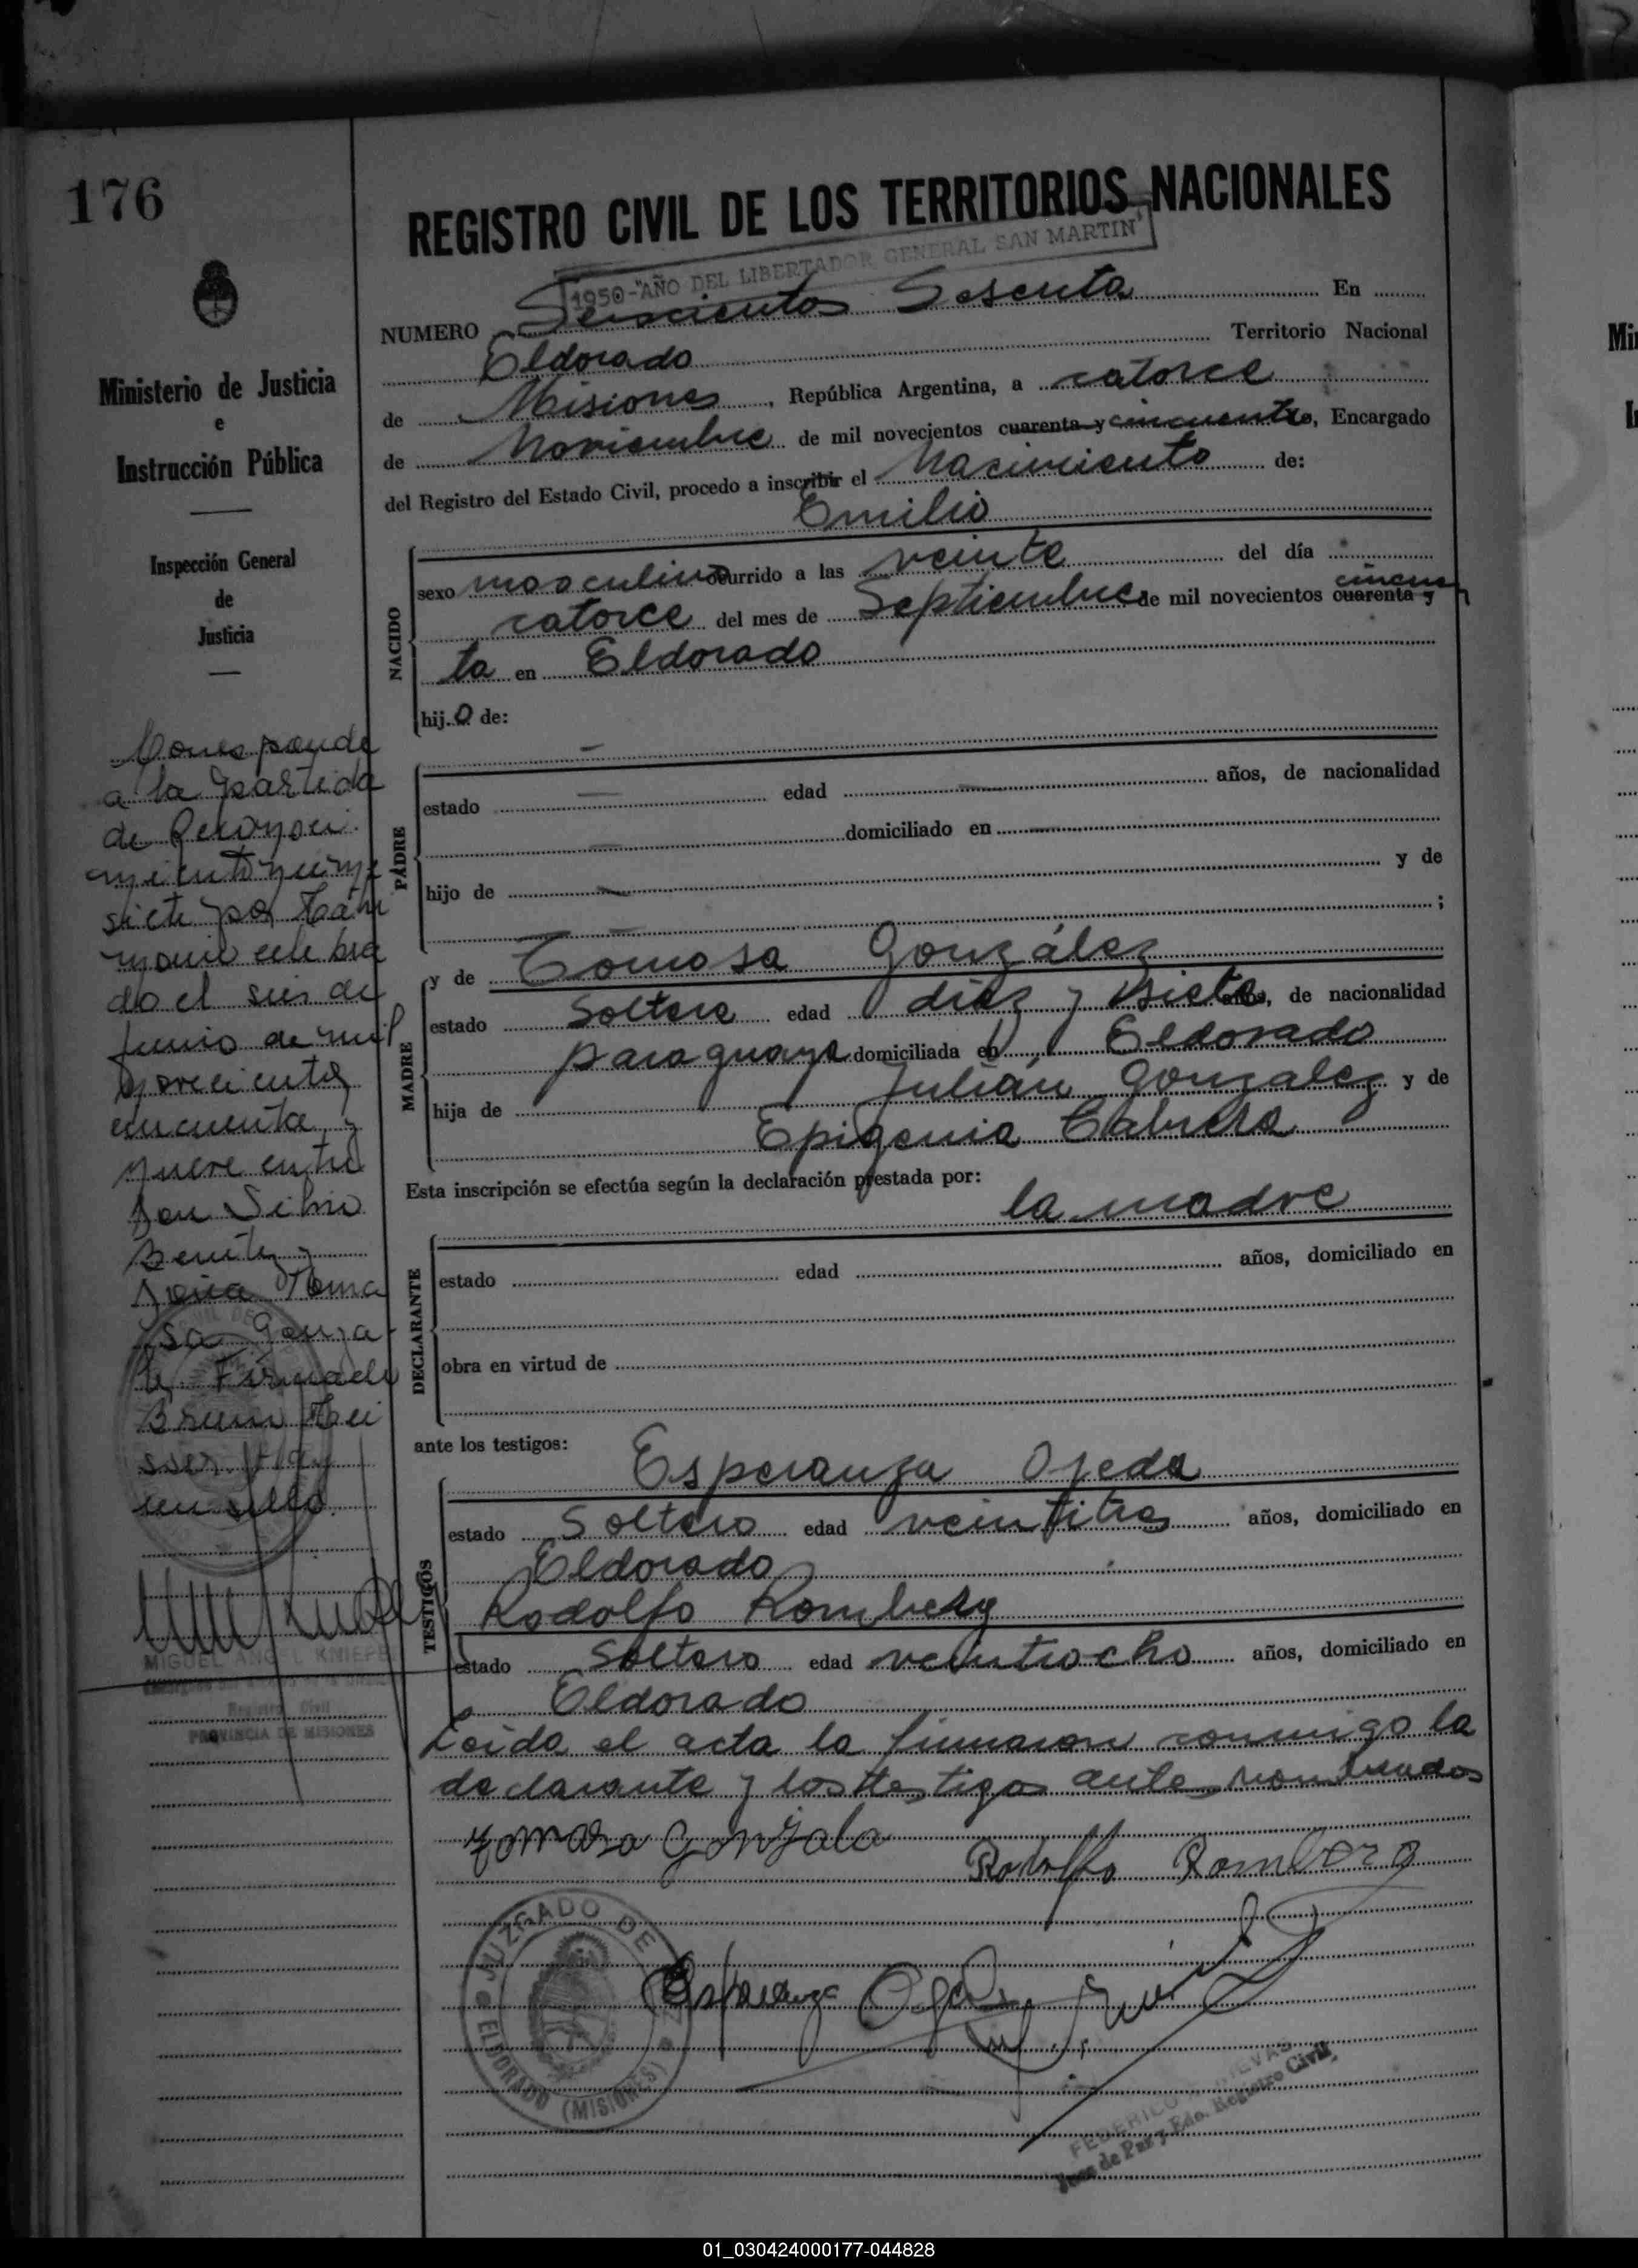 176
Ministerio de Justicia
e
Instrucción Pública
Inspección General
de
Justicia
Corresponde
a la partida
de Reconoci
miento
siete por
celebra
do el seis de
junio de mil
novecientos
cincuenta y
nueve entre
don Silvio
Benitez y
doña Toma
sa Gonza-
lez Firmado
Hay
un sello.
MIGUEL ANGEL KNIEPE
Registro Civil
PROVINCIA DE MISIONES
REGISTRO CIVIL DE LOS TERRITORIOS NACIONALES
1950-"AÑO DEL LIBERTADOR GENERAL SAN MARTIN"
NUMERO Seiscientos Sesenta En
Eldorado Territorio Nacional
de Misiones, República Argentina, a catorce
de Noviembre de mil novecientos cuarenta y cincuenta, Encargado
del Registro del Estado Civil, procedo a inscribir el Nacimiento de:
Emilio
NACIDO
sexo masculino ocurrido a las veinte del día
catorce del mes de Septiembre de mil novecientos cuarenta y cincuen
ta en Eldorado
hijo de:
PADRE
estado edad años, de nacionalidad
domiciliado en
hijo de y de
;
MADRE
y de Tomasa González
estado Soltera edad diez y siete años, de nacionalidad
paraguaya domiciliada en Eldorado
hija de Julián Gonzalez y de
Epigenia Cabrera
Esta inscripción se efectúa según la declaración prestada por:
la madre
DECLARANTE
estado edad años, domiciliado en
obra en virtud de
ante los testigos:
Esperanza Ojeda
TESTIGOS
estado Soltero edad veintitres años, domiciliado en
Eldorado
Rodolfo Romberg
estado Soltero edad veintiocho años, domiciliado en
Eldorado
Leida el acta la firmaron conmigo la
declarante y los testigos ante nombrados
Tomasa Gonzala
Rodolfo Romberg
Esperanza Ojeda
JUZGADO DE PAZ
ELDORADO (MISIONES)
FEDERICO
Juez de Paz y Edo. Registro Civil
01_030424000177-044828